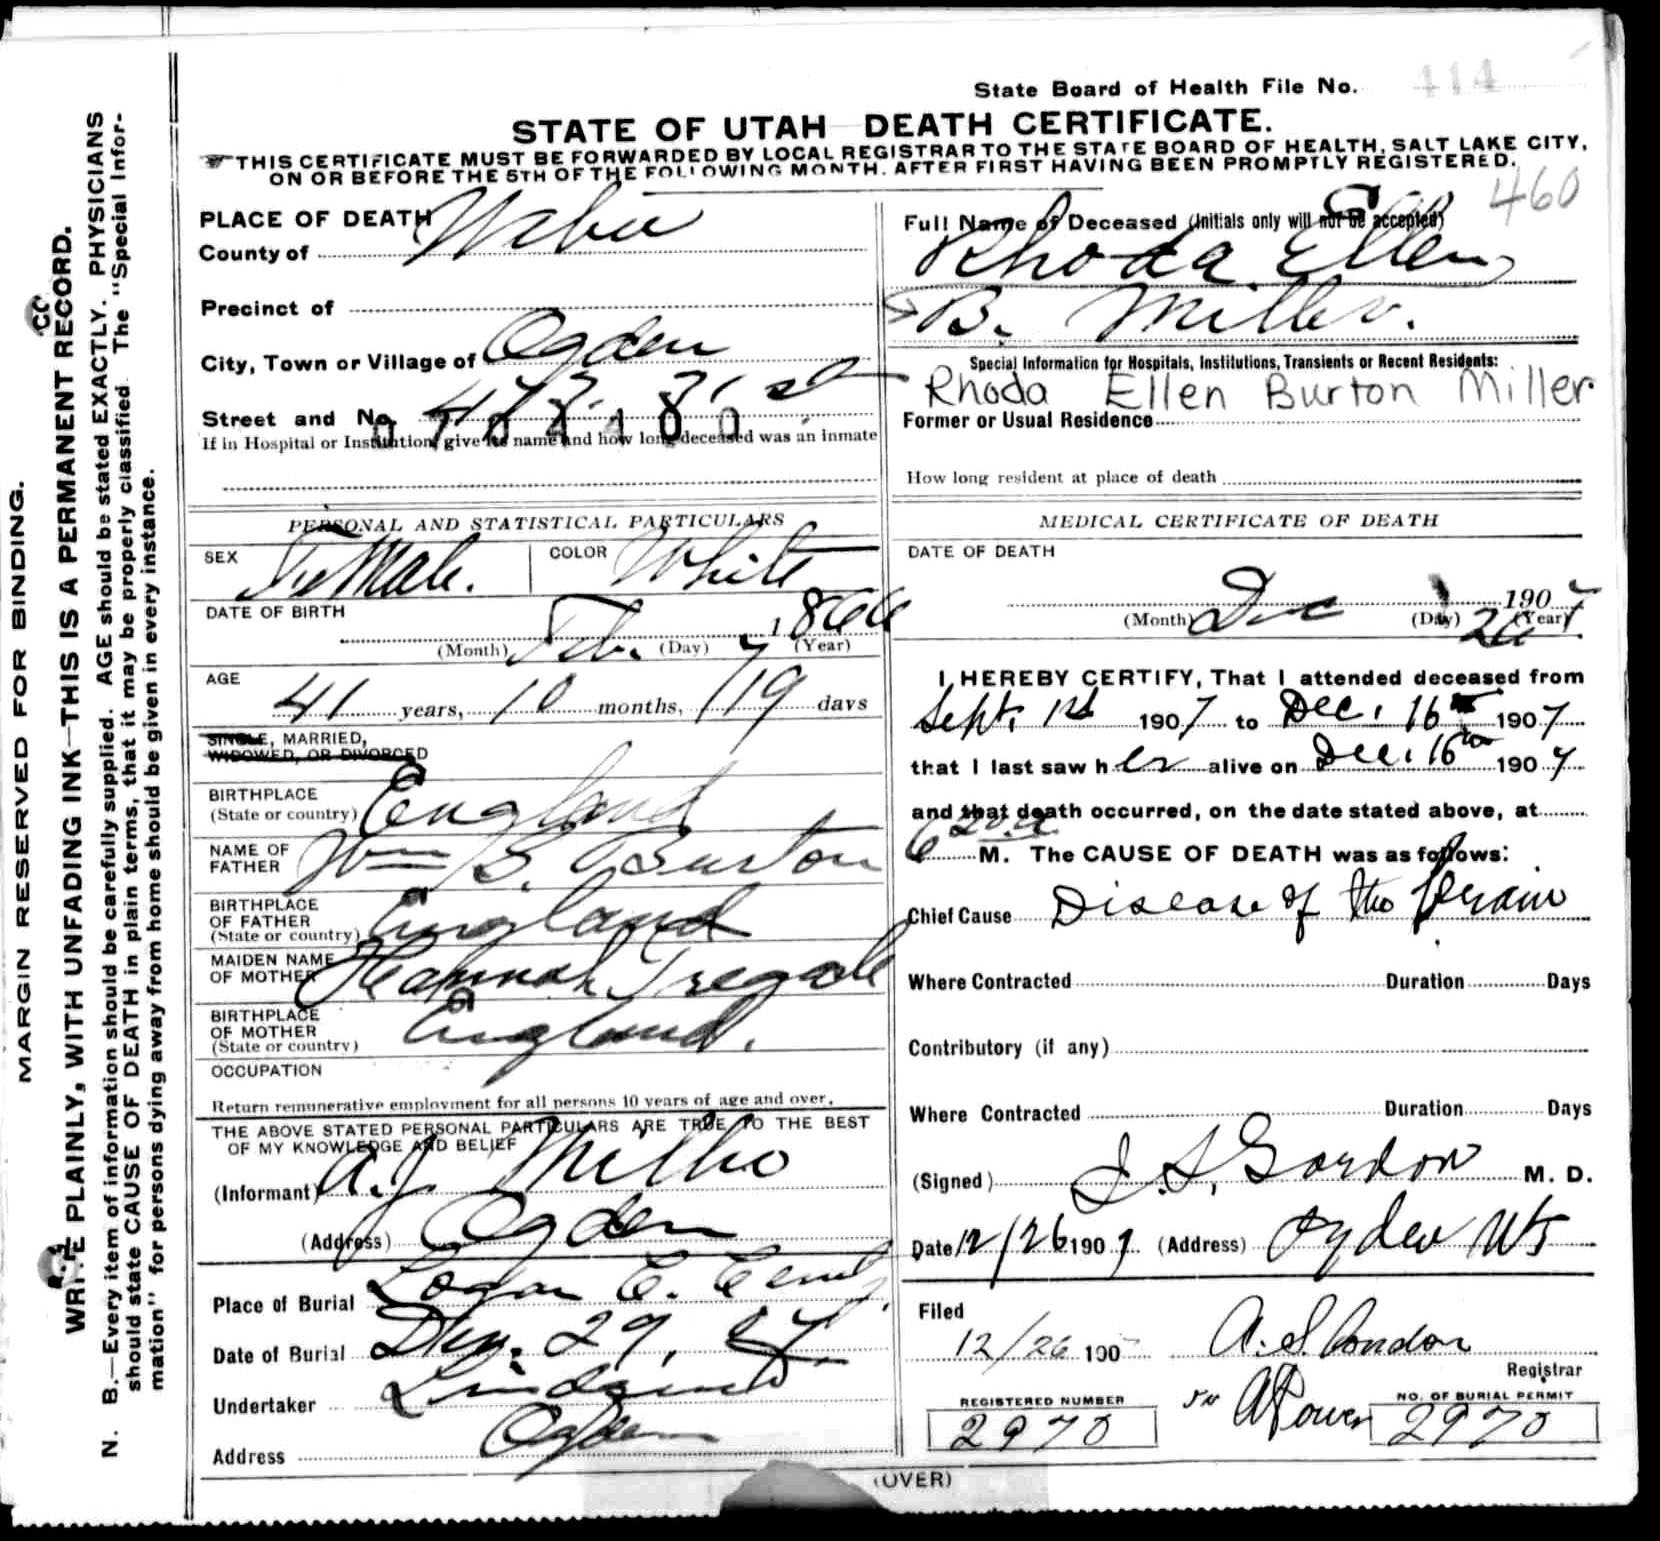 State Board of Health File No. 414
STATE OF UTAH DEATH CERTIFICATE.
THIS CERTIFICATE MUST BE FORWARDED BY LOCAL REGISTRAR TO THE STATE BOARD OF HEALTH, SALT LAKE CITY,
ON OR BEFORE THE 5TH OF THE FOLLOWING MONTH. AFTER FIRST HAVING BEEN PROMPTLY REGISTERED.
460
MARGIN RESERVED FOR BINDING.
WRITE PLAINLY, WITH UNFADING INK—THIS IS A PERMANENT RECORD.
N. B.—Every item of information should be carefully supplied. AGE should be stated EXACTLY. PHYSICIANS
should state CAUSE OF DEATH in plain terms, that it may be properly classified. The "Special Infor-
mation" for persons dying away from home should be given in every instance.
PLACE OF DEATH
County of Weber
Precinct of
City, Town or Village of Ogden
Street and No. 31 st
If in Hospital or Institution, give its name and how long deceased was an inmate
PERSONAL AND STATISTICAL PARTICULARS
SEX Female. COLOR White
DATE OF BIRTH
Feb. 7 1866
(Month) (Day) (Year)
AGE
41 years, 10 months, 19 days
SINGLE, MARRIED,
WIDOWED, OR DIVORCED
BIRTHPLACE
(State or country) England
NAME OF
FATHER Wm S. Burton
BIRTHPLACE
OF FATHER
(State or country) England
MAIDEN NAME
OF MOTHER Hannah
BIRTHPLACE
OF MOTHER
(State or country) England.
OCCUPATION
Return remunerative employment for all persons 10 years of age and over.
THE ABOVE STATED PERSONAL PARTICULARS ARE TRUE TO THE BEST
OF MY KNOWLEDGE AND BELIEF
(Informant) A. J. Miller
(Address) Ogden
Place of Burial Logan C.
Date of Burial 29,
Undertaker Lindquist
Address Ogden
Full Name of Deceased (Initials only will not be accepted)
Rhoda Ellen
B. Miller.
Special Information for Hospitals, Institutions, Transients or Recent Residents:
Rhoda Ellen Burton Miller
Former or Usual Residence
How long resident at place of death
MEDICAL CERTIFICATE OF DEATH
DATE OF DEATH
Dec 26 1907
(Month) (Day) (Year)
I HEREBY CERTIFY, That I attended deceased from
Sept. 1st 1907 to Dec. 16th 1907
that I last saw her alive on Dec. 16th 1907
and that death occurred, on the date stated above, at
6 20 a M. The CAUSE OF DEATH was as follows:
Chief Cause Disease of the brain
Where Contracted Duration Days
Contributory (if any)
Where Contracted Duration Days
(Signed) J. S. Gordon M. D.
Date 12/26 1907 (Address) Ogden Ut
Filed
12/26 190 A. S. Condon
Registrar
REGISTERED NUMBER
2970
NO. OF BURIAL PERMIT
2970
(OVER)